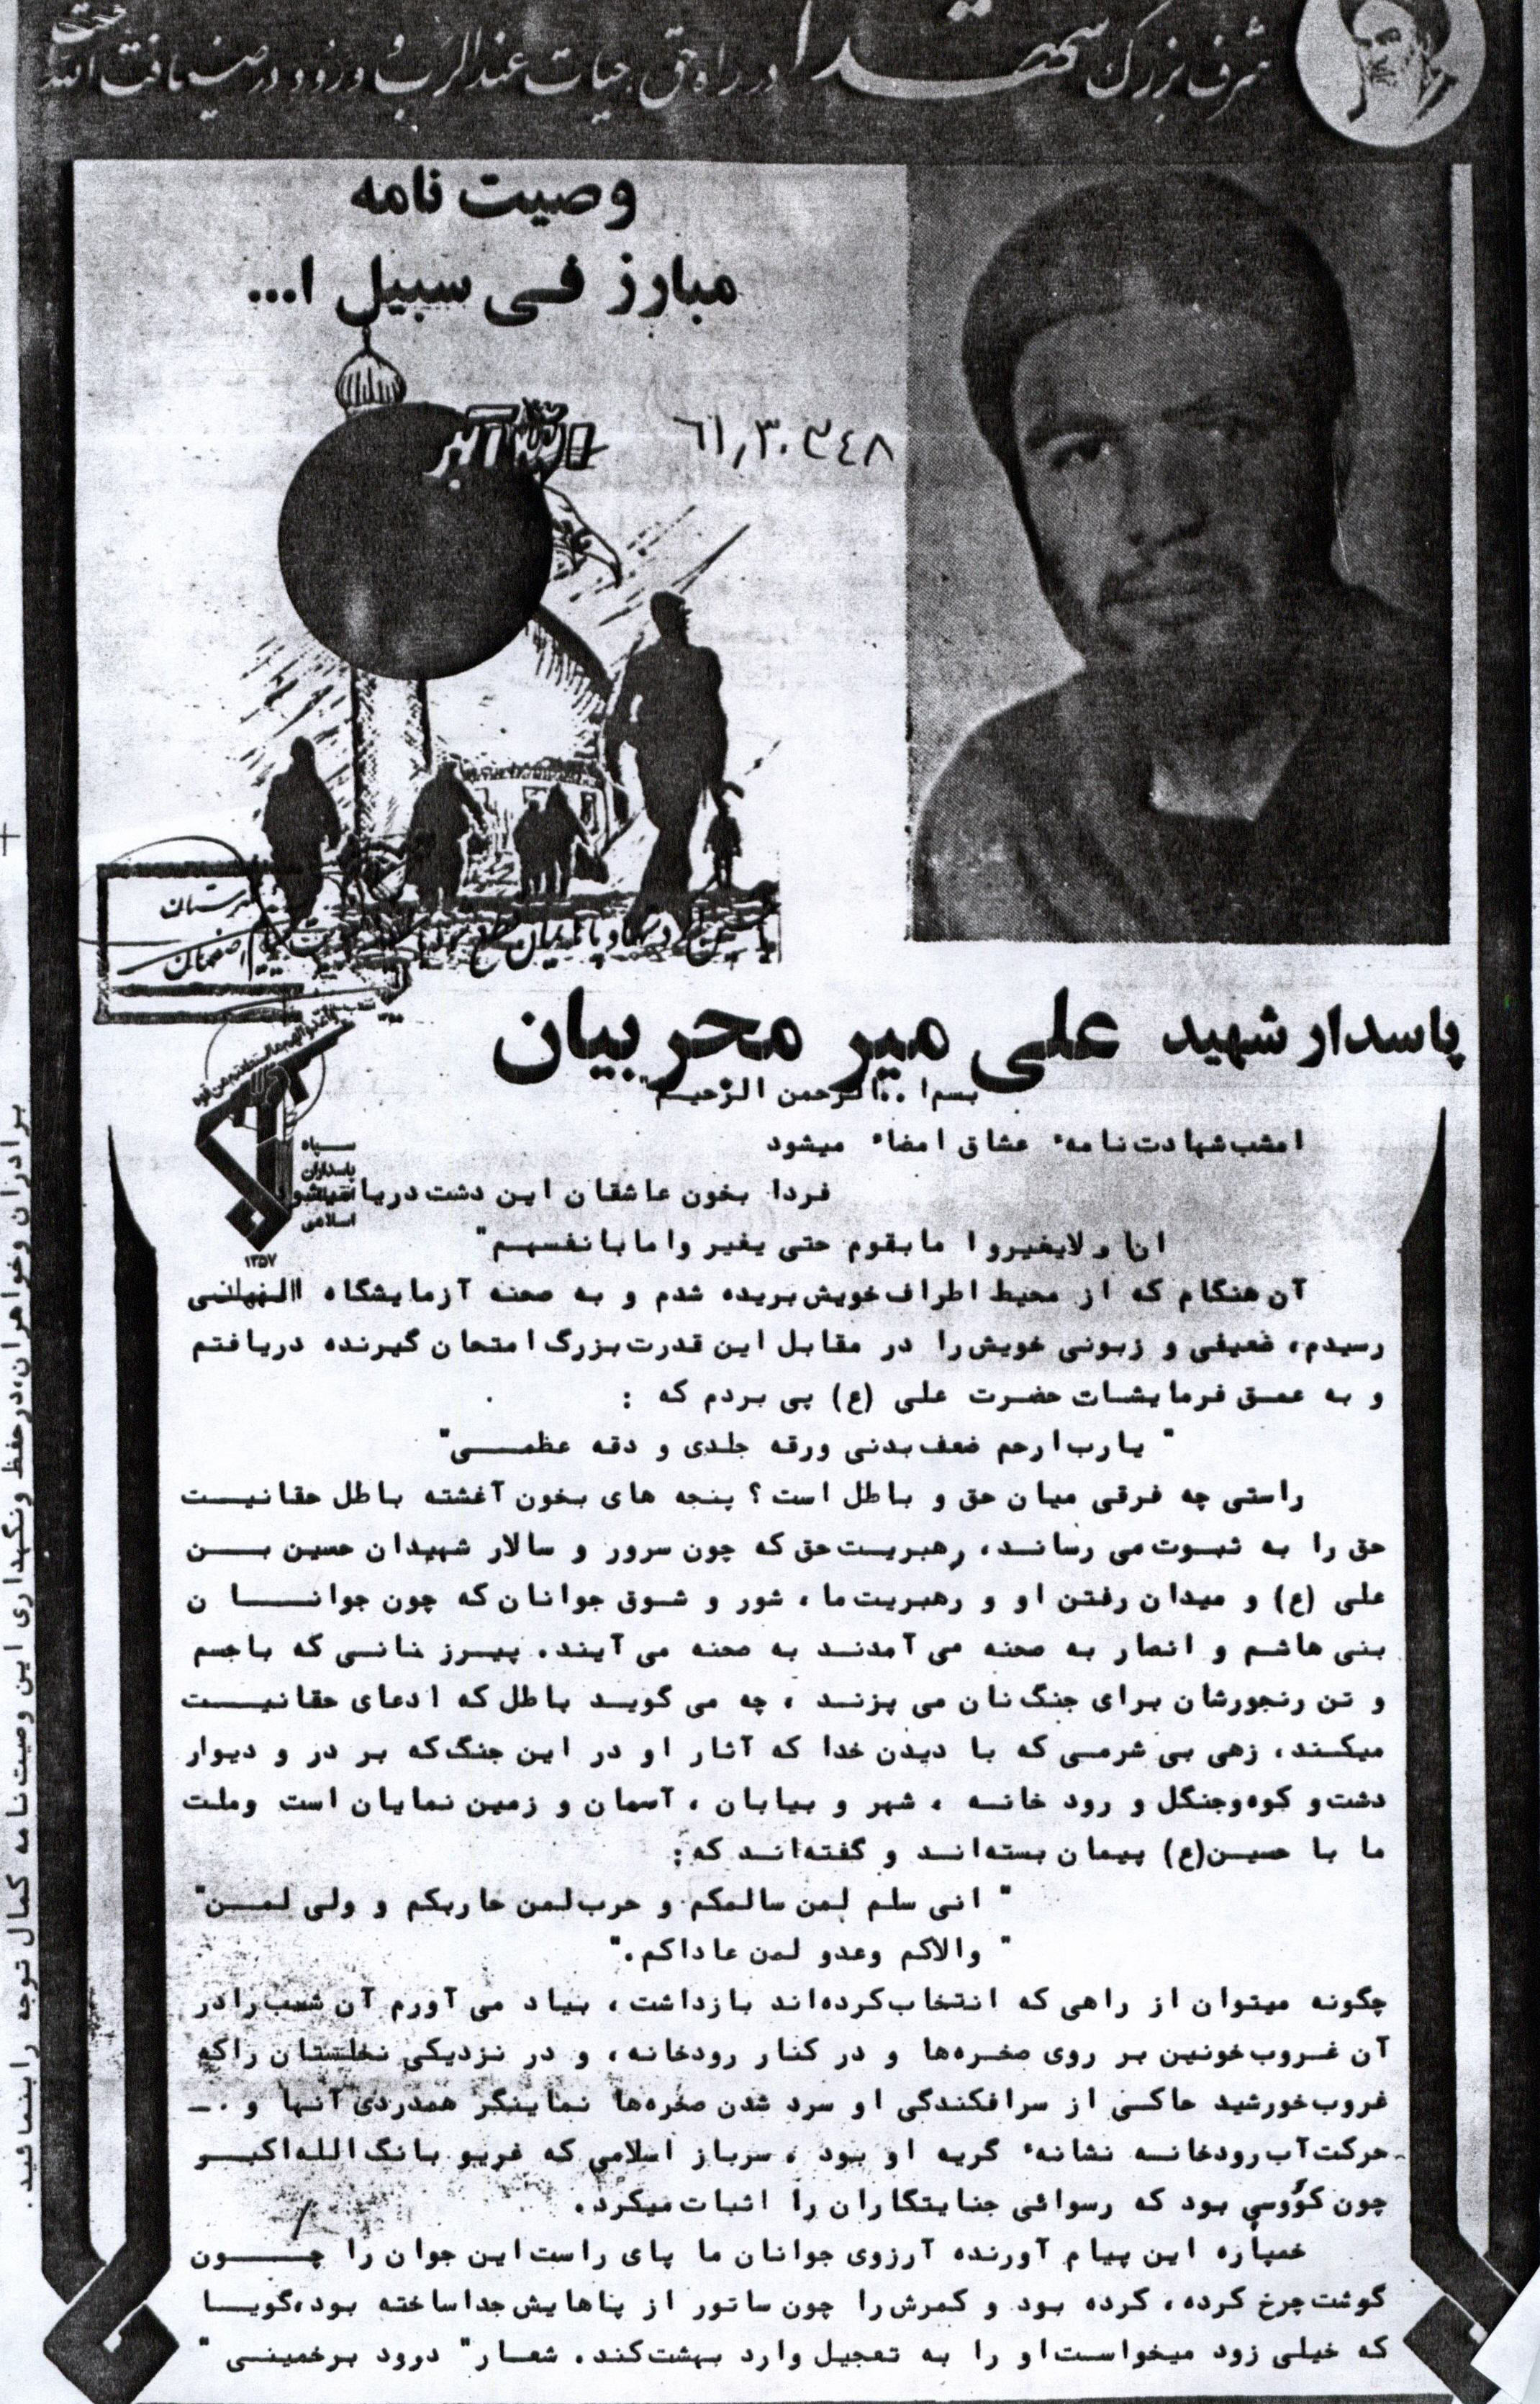 شرف بزرگ شهدا در راه حق حیات عندالرب و ورود در ضیافت الله
وصیت نامه
مبارز فی سبیل ا...
الله اکبر
۶۱٫۳۰۳۴۸
شهرستان
اصفهان
پاسدار شهید علی میر محربیان
بسم ا ..الرحمن الرحیم"
سپاه
پاسداران
اسلامی
۱۳۵۷
امشب شهادت نامهء عشاق امضاء میشود
فردا بخون عاشقان این دشت دریا میشود
ان ا و لایغیروا مابقوم حتی یغیر واما بانفسهم"
آن هنگام که از محیط اطراف خویش بریده شدم و به صحنه آزمایشگاه الهی
رسیدم، ضعیفی و زبونی خویش را در مقابل این قدرت بزرگ امتحان گیرنده دریافتم
و به عمق فرمایشات حضرت علی (ع) پی بردم که :
" یا رب ارحم ضعف بدنی ورقه جلدی و دقه عظمی"
راستی چه فرقی میان حق و باطل است؟ پنجه های بخون آغشته باطل حقانیت
حق را به ثبوت می رساند، رهبریت حق که چون سرور و سالار شهیدان حسین بن
علی (ع) و میدان رفتن او و رهبریت ما، شور و شوق جوانان که چون جوانا ن
بنی هاشم و انصار به صحنه می آمدند به صحنه می آیند. پیرز نانی که باجسم
و تن رنجورشان برای جنگ نان می پزند ، چه می گوید باطل که ادعای حقانیت
میکند، زهی بی شرمی که با دیدن خدا که آثار او در این جنگ که بر در و دیوار
دشت و کوه وجنگل و رود خانه ، شهر و بیابان ، آسمان و زمین نمایان است وملت
ما با حسین(ع) پیمان بسته‌اند و گفته‌اند که:
" انی سلم لمن سالمکم و حرب لمن حاربکم و ولی لمن"
" والاکم وعدو لمن عاداکم."
چگونه میتوان از راهی که انتخاب کرده‌اند بازداشت، بیاد می آورم آن شب را در
آن غروب خونین بر روی صخره‌ها و در کنار رودخانه، و در نزدیکی نخلستان راکه
غروب خورشید حاکی از سرافکندگی او سرد شدن صخره‌ها نمایینگر همدردی آنها و
حرکت آب رودخانه نشانهء گریه او بود ، سرباز اسلامی که غریو بانگ الله اکبر
چون کؤوسی بود که رسوائی جنایتگاران را اثبات میکرد.
خمپاره این پیام آورنده آرزوی جوانان ما پای راست این جوان را چون
گوشت چرخ کرده، کرده بود و کمرش را چون ساتور از پاهایش جدا ساخته بود،گویا
که خیلی زود میخواست او را به تعجیل وارد بهشت کند. شعار" درود برخمینی "
برادران وخواهران،درحفظ ونگهداری این وصیت نامه کمال توجه رابنمائید.